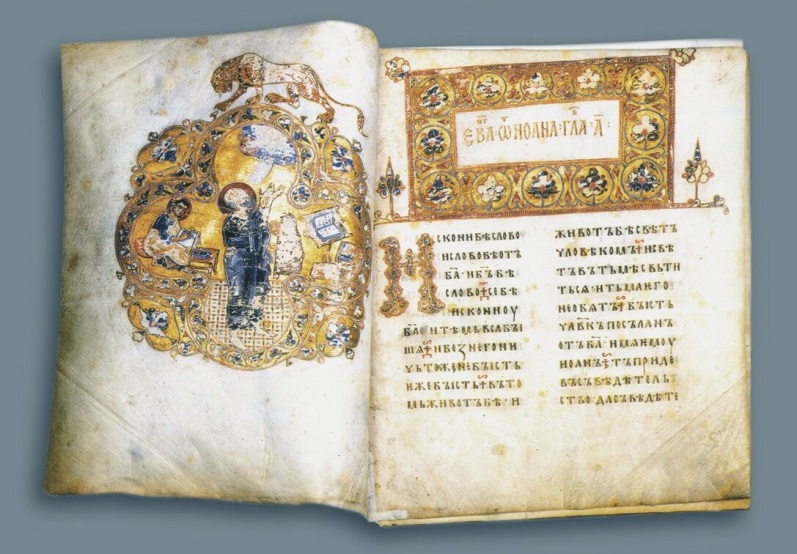 ЕВА·ѾИОАНА·ГЛА·А҃·
ИСКОНИБѢСЛОВО
ИСЛОВОБѢОТЪ
БА҃·ИБ҃ЪБѢ
СЛОВО·СЕБѢ
ИСКОНИОУ
БА҃·ИТѢМЬВЬСАБЫ
ША·ИБЕЗНЕГОНИ
ЧЬТОЖЕНЕБЫСТЬ
ѤЖЕБЫСТЬ·ВЪТО
МЬЖИВОТЪБѢ·И
ЖИВОТЪБѢСВѢТЪ
ЧЛОВѢКОМЪ·ИСВѢ
ТЪВЪТЬМѢСВЬТИ
ТЬСѦ·ИТЬМАѤГО
НЕОБѦТЪ·БЫСТЬ
ЧЛ҃ВКЪПОСЪЛАНЪ
ОТЪБА҃·ИМѦѤМОУ
ИОАНЪ·ТЪПРИДЕ
ВЪСЪВѢДѢТЕЛЬ
СТВО·ДАСЪВѢДѢТЕ